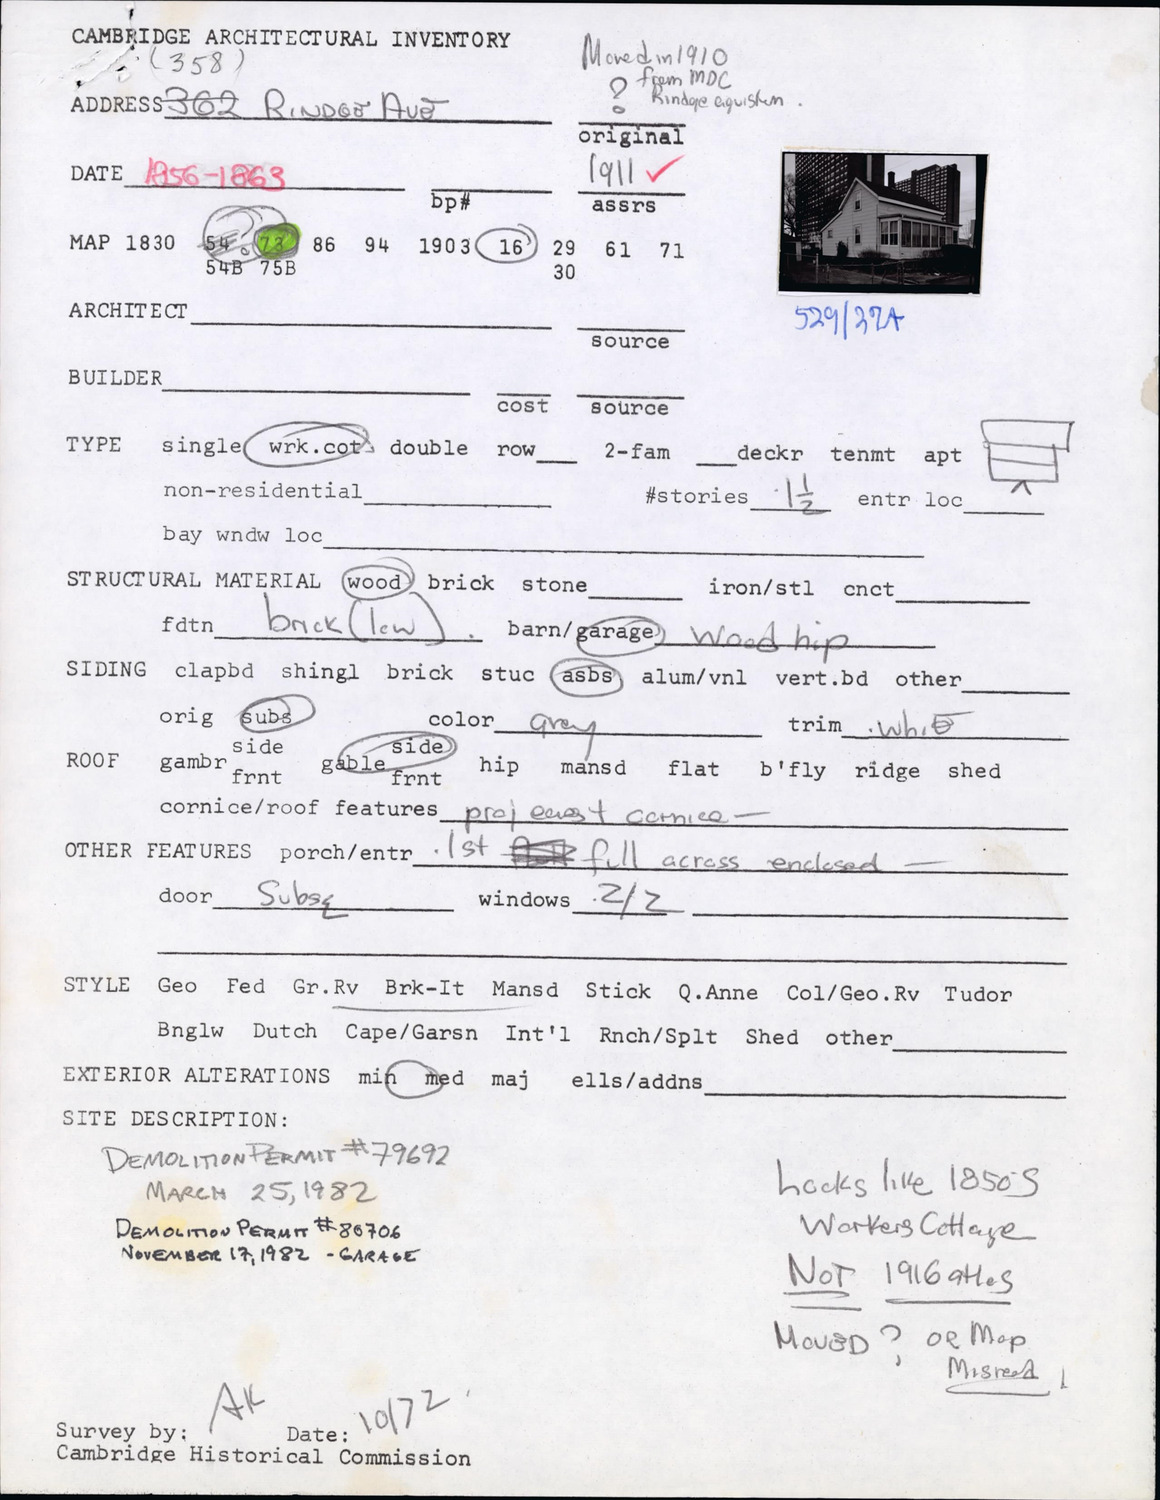 CAMBRIDGE ARCHITECTURAL INVENTORY
(358)
Moved in 1910
? from MDC
Rindge
ADDRESS 362 RINDGE AVE
original
DATE 1856-1863
1911 ✓
bp# assrs
MAP 1830 54 73 86 94 1903 16 29 61 71
54B 75B 30
529/32A
ARCHITECT
source
BUILDER
cost source
TYPE single wrk.cot double row 2-fam deckr tenmt apt
non-residential #stories 1½ entr loc
bay wndw loc
STRUCTURAL MATERIAL wood brick stone iron/stl cnct
fdtn brick (low) barn/garage Wood hip
SIDING clapbd shingl brick stuc asbs alum/vnl vert.bd other
orig subs color grey trim white
ROOF gambr side frnt gable side frnt hip mansd flat b'fly ridge shed
cornice/roof features proj east cornice —
OTHER FEATURES porch/entr 1st full across enclosed —
door Subsq windows 2/2
STYLE Geo Fed Gr.Rv Brk-It Mansd Stick Q.Anne Col/Geo.Rv Tudor
Bnglw Dutch Cape/Garsn Int'l Rnch/Splt Shed other
EXTERIOR ALTERATIONS min med maj ells/addns
SITE DESCRIPTION:
DEMOLITION PERMIT #79692
MARCH 25, 1982
DEMOLITION PERMIT #80706
NOVEMBER 17, 1982 - GARAGE
Looks like 1850's
Workers Cottage
NOT 1916 atlas
MOVED? OR Map
Misread!
Survey by: AK Date: 10/72
Cambridge Historical Commission